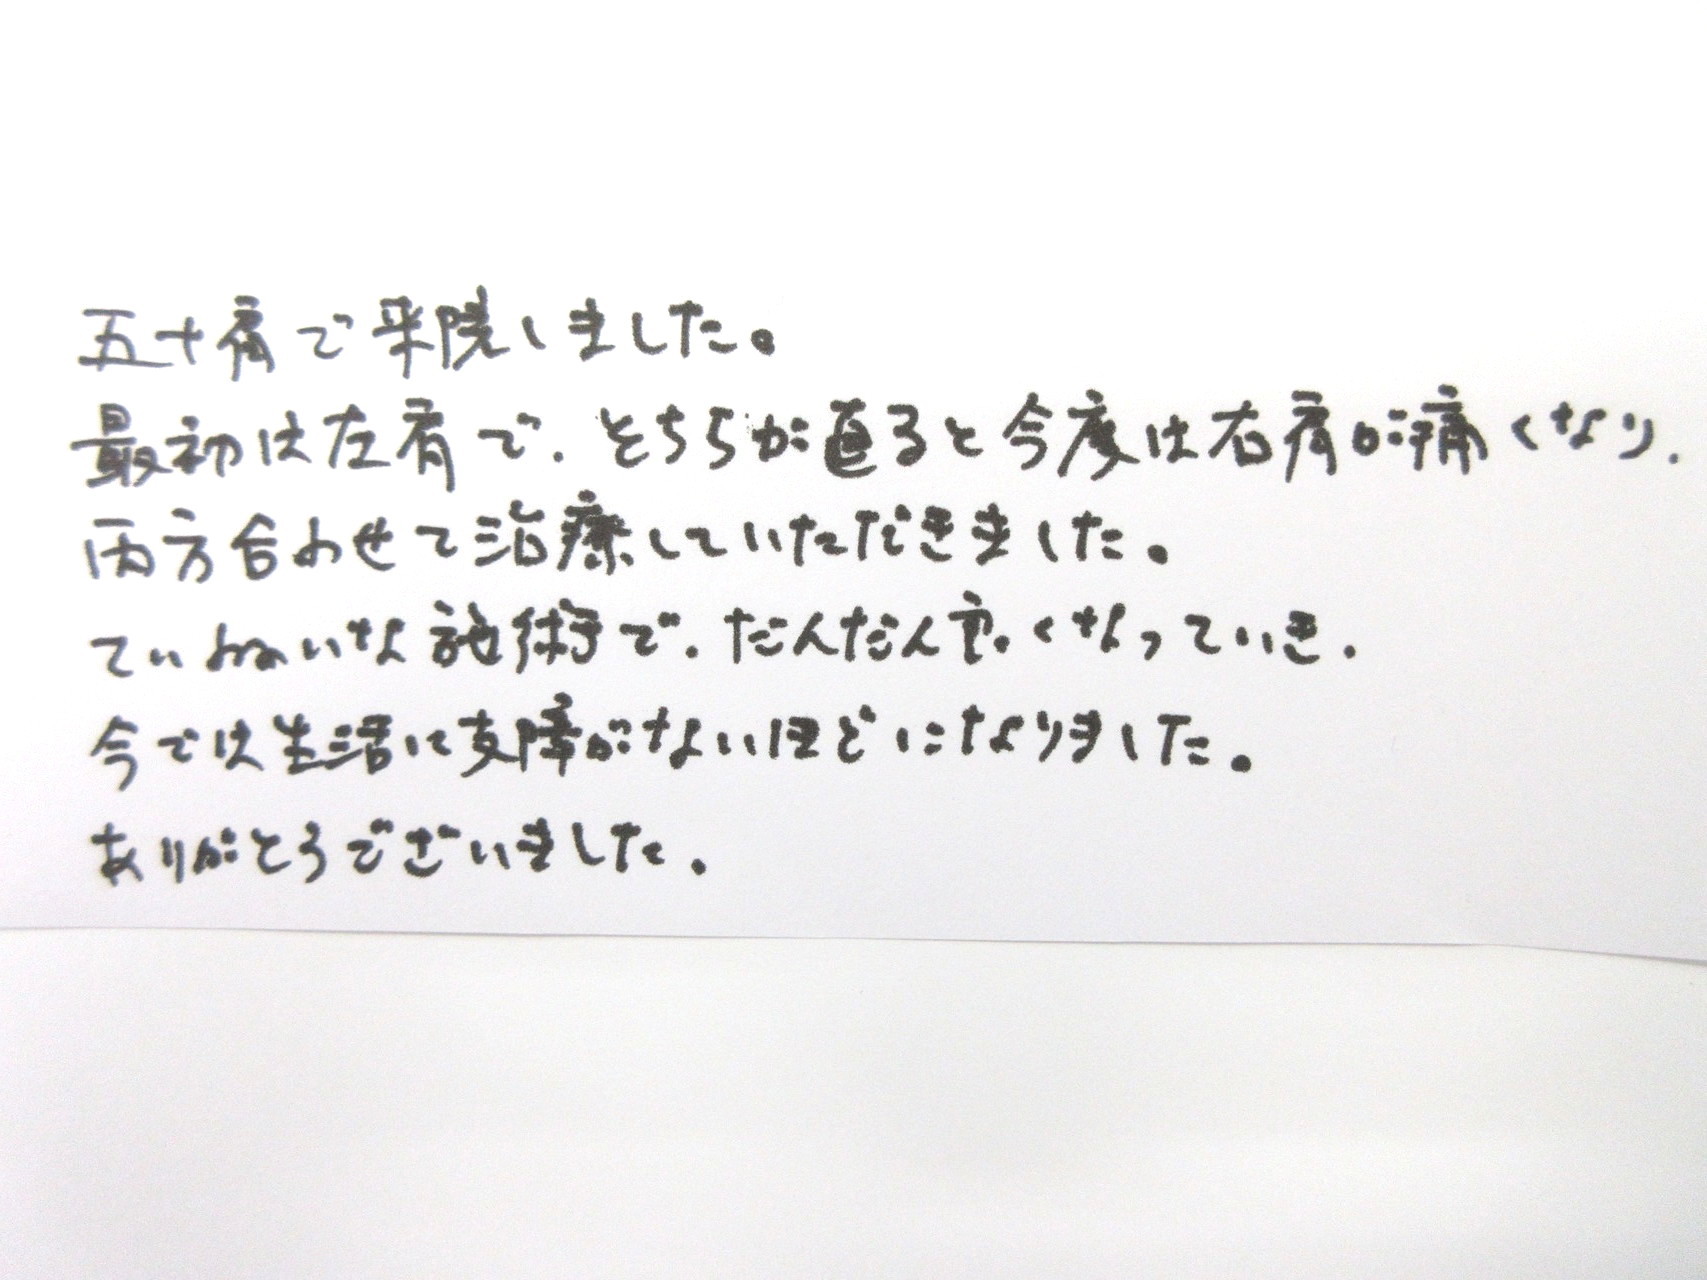 五十肩で来院しました。
最初は左肩で、そちらが直ると今度は右肩が痛くなり、
両方合わせて治療していただきました。
ていねいな施術で、だんだん良くなっていき、
今では生活に支障がないほどになりました。
ありがとうございました。